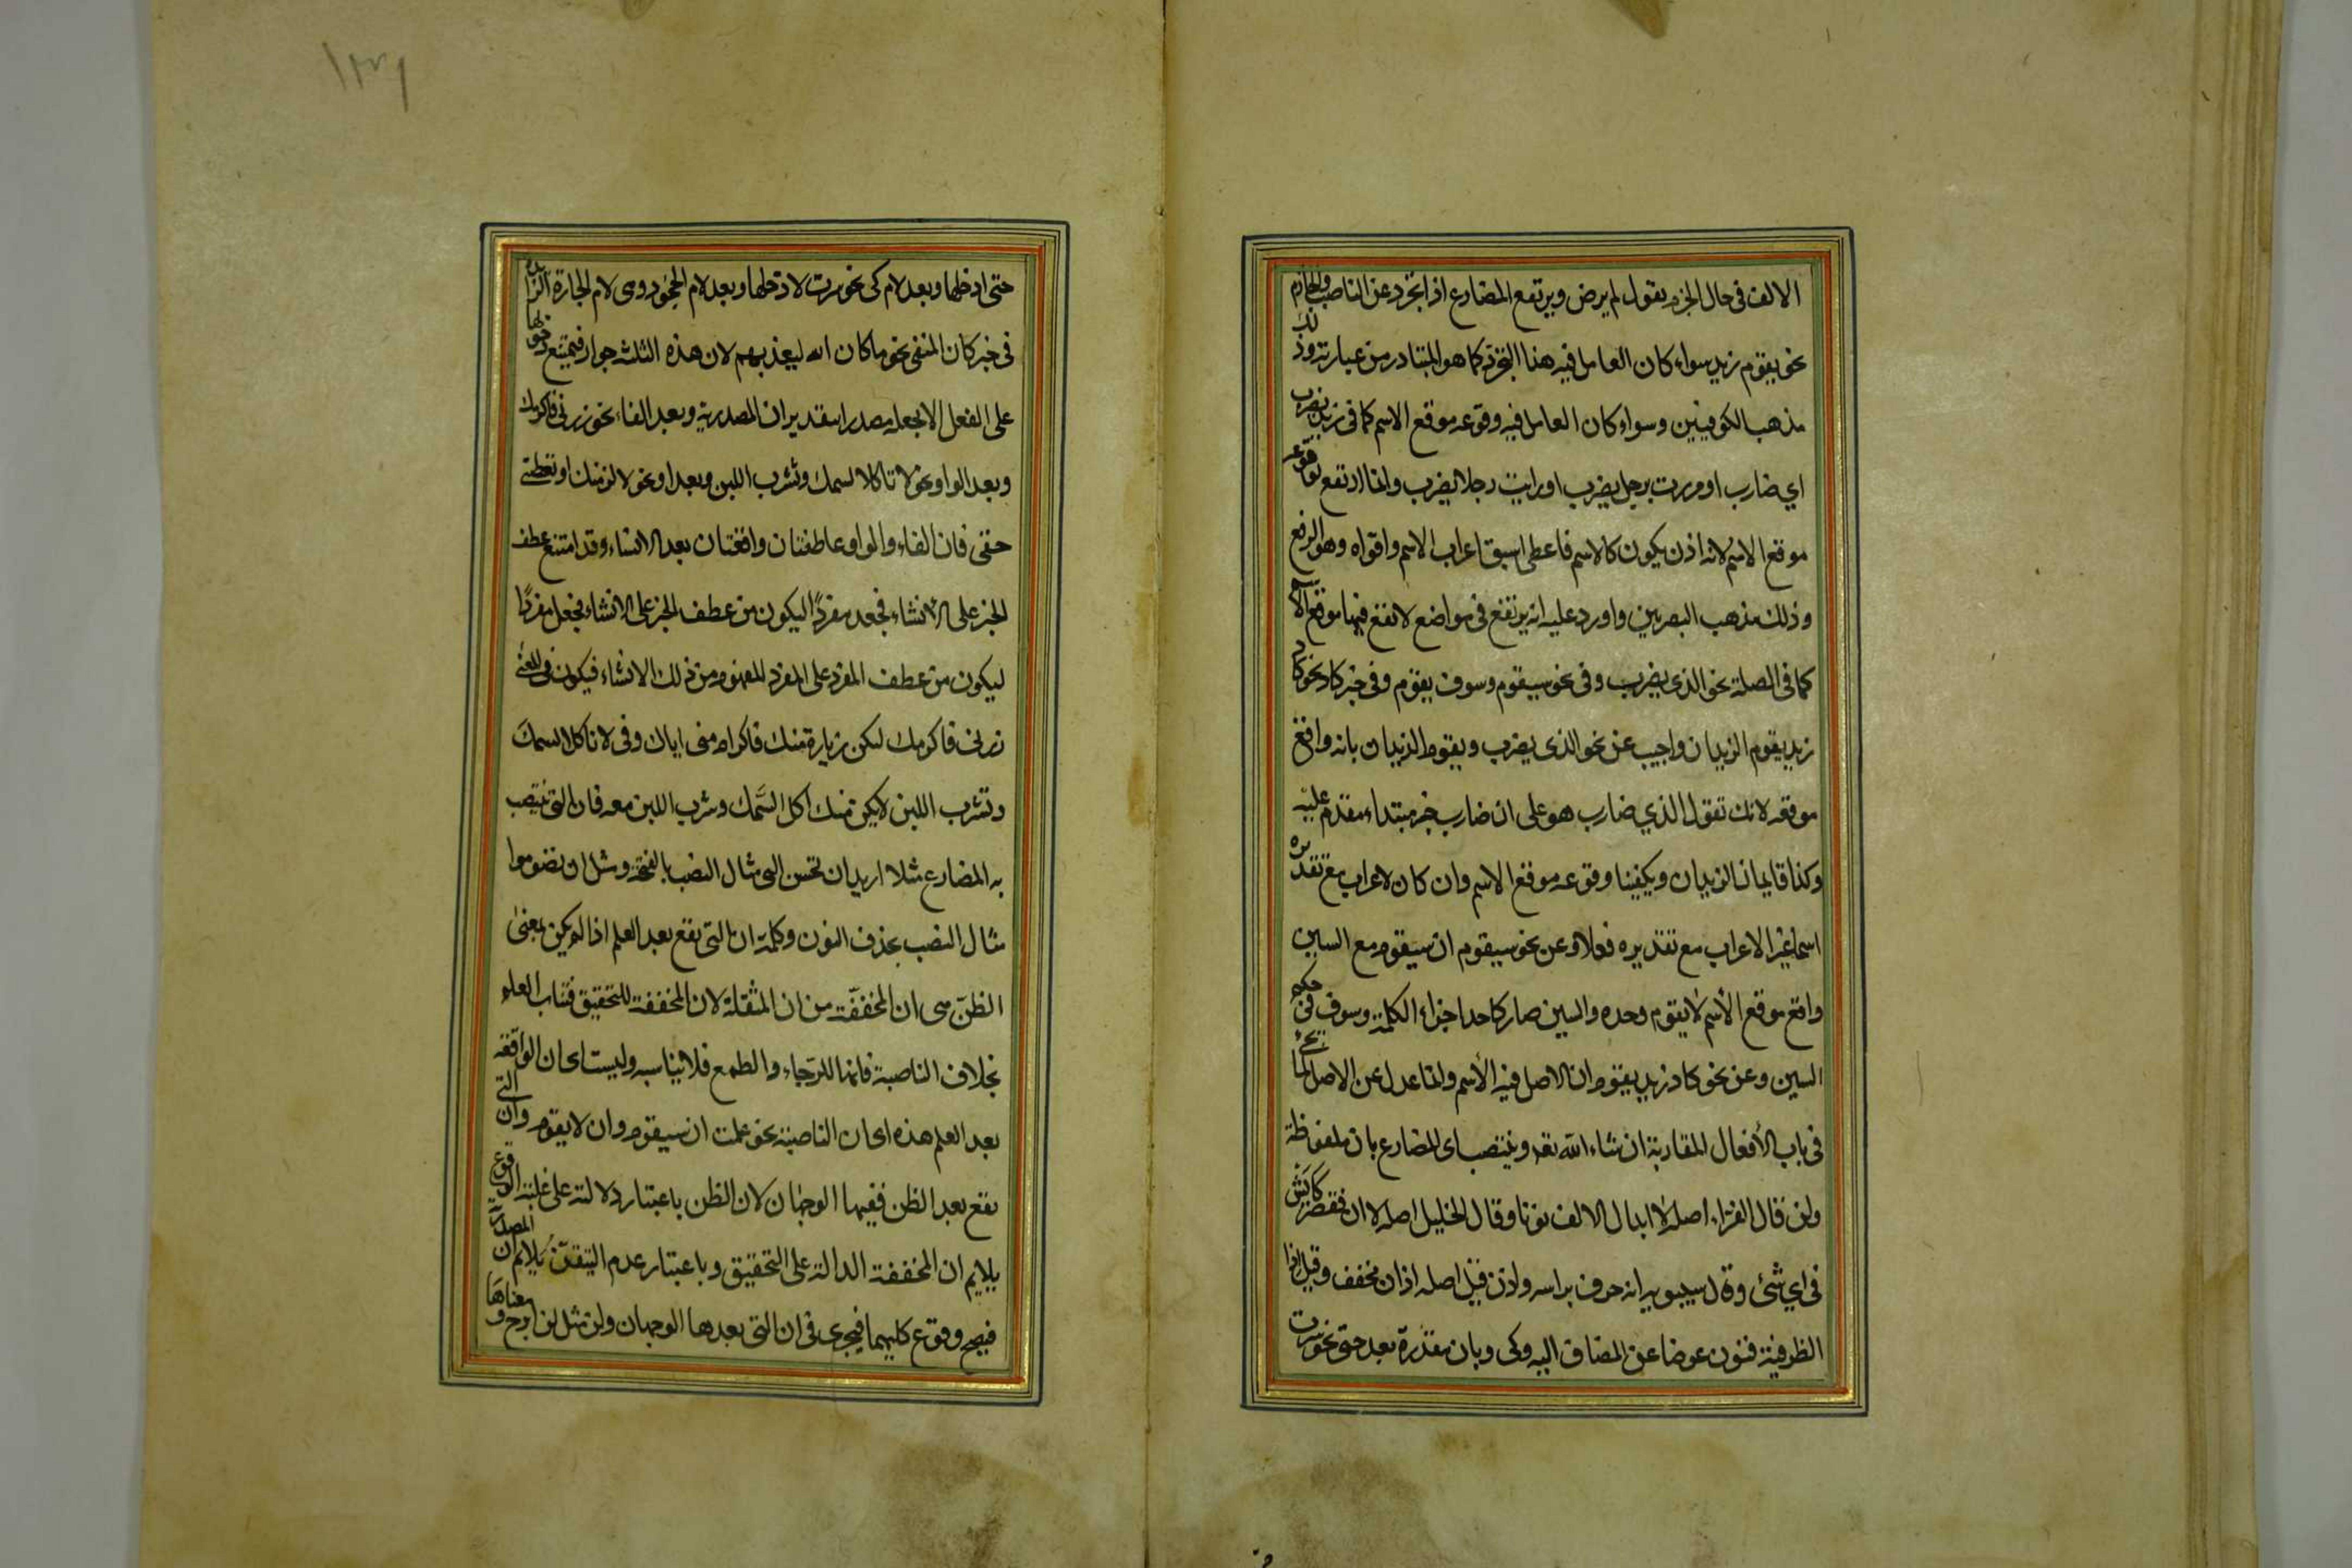 الالف فى حال الجزم يقول لم يرض ويرتفع المضارع اذا تجرد عن الناصب والجازم
نحو يقوم زيد سواء كان العامل فيه هذا التجرد كما هو المتبادر من عبارته وذلك
مذهب الكوفيين وسواء كان العامل فيه وقوعه موقع الاسم كما فى زيد يضرب
اي ضارب او مررت برجل يضرب او رايت رجلا يضرب وانما ارتفع بوقوعه
موقع الاسم لانه اذن يكون كالاسم فاعطى اسبق اعراب الاسم واقواه وهو الرفع
وذلك مذهب البصريين واورد عليه انه يرتفع فى مواضع لا تقع فيها موقع الاسم
كما فى الصلة نحو الذى يضرب وفى نحو سيقوم وسوف يقوم وفى خبر كاد نحو كاد
زيد يقوم الزيدان واجيب عن نحو الذى يضرب ويقوم الزيدان بانه واقع
موقعه لانك تقول الذي ضارب هو على ان ضارب خبر مبتداء مقدم عليه
وكذا قايمان الزيدان ويكفينا وقوعه موقع الاسم وان كان الاعراب مع تقديره
اسما غير الاعراب مع تقديره فعلا وعن نحو سيقوم ان سيقوم مع السين
واقع موقع الأسم لا يقوم وحده والسين صار كاحد اجزاء الكلمة وسوف فى حكم
السين وعن نحو كاد زيد يقوم ان الاصل فيه الأسم وانما عدل عن الاصل لما يجئ
فى باب الأفعال المقاربة ان شاء الله تعه وينتصب اى المضارع بان ملفوظة
ولن قال الفراء اصله لا ابدال الالف نونا وقال الخليل اصله لا ان فقصر كايش
فى اي شئ وقال سيبويه انه حرف براسه واذن قيل اصله اذ ان مخفف وقيل اذا
الظرفية فنون عوضا عن المضاف اليه وكى وبان مقدرة بعد حتى نحو سرت
حتى ادخلها وبعد لام كى نحو سرت لادخلها وبعد لام الجحود وهى لام الجارة الزايدة
فى خبر كان المنفى نحو ما كان الله ليعذبهم لان هذه الثلثه جوار فيمتنع دخولها
على الفعل الا بجعله مصدرا بتقدير ان المصدرية وبعد الفاء نحو زرنى فاكرمك
وبعد الواو نحو لا تاكل السمك وتشرب اللبن وبعد او نحو لالزمنك او تعطينى
حقى فان الفاء والواو عاطفتان واقعتان بعد الانشاء وقد امتنع عطف
الخبر على الانشاء فجعد مفردًا ليكون من عطف الخبر على الانشاء فجعل مفردًا
ليكون من عطف المفرد على المفرد المفهوم من ذلك الانشاء فيكون فى المعنى
زرنى فاكرمك ليكن زيارة منك فاكرام منى اياك وفى لا تاكل السمك
وتشرب اللبن لا يكن منك اكل السَّمك وشرب اللبن معه فان التى ينتصب
به المضارع مثلا اريد ان تحسن الى مثال النصب بالفتحة ومثل ان تصوموا
مثال النصب بحذف النون وكلمة ان التى تقع بعد العلم اذا لم يكن بمعنى
الظنّ هى ان المخففة من ان المثقلة لان المخففة للتحقيق فتناسب العلم
بخلاف الناصبة فانها للرجاء والطمع فلا يناسبه وليست اى ان الواقعه
بعد العلم هذه اى ان الناصبة نحو علمت ان سيقوم وان لا يقوم وان التى
تقع بعد الظن ففيها الوجهان لان الظن باعتبار دلالته على غلبة الوقوع
يلايم ان المخففة الدالة على التحقيق وباعتبار عدم التيقن يلايم ان المصدرية
فيصح وقوع كليهما فيجرى فى ان التى بعدها الوجهان ولن مثل لن ابرح ومعناها